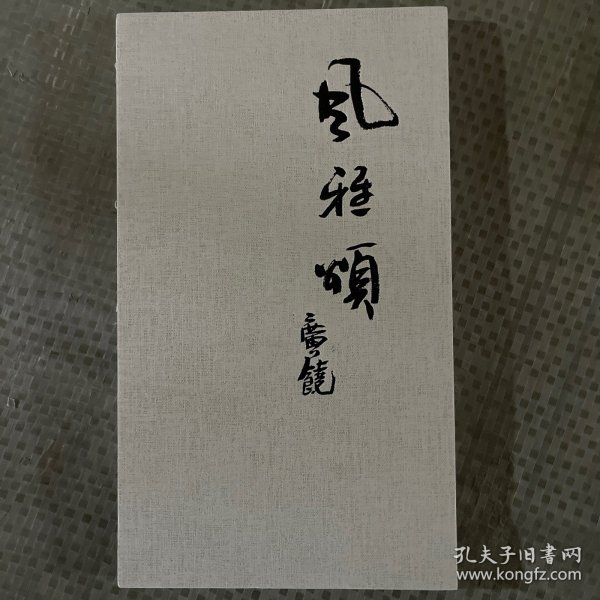 风雅頌
廣饒
孔夫子旧书网
www.kongfz.com